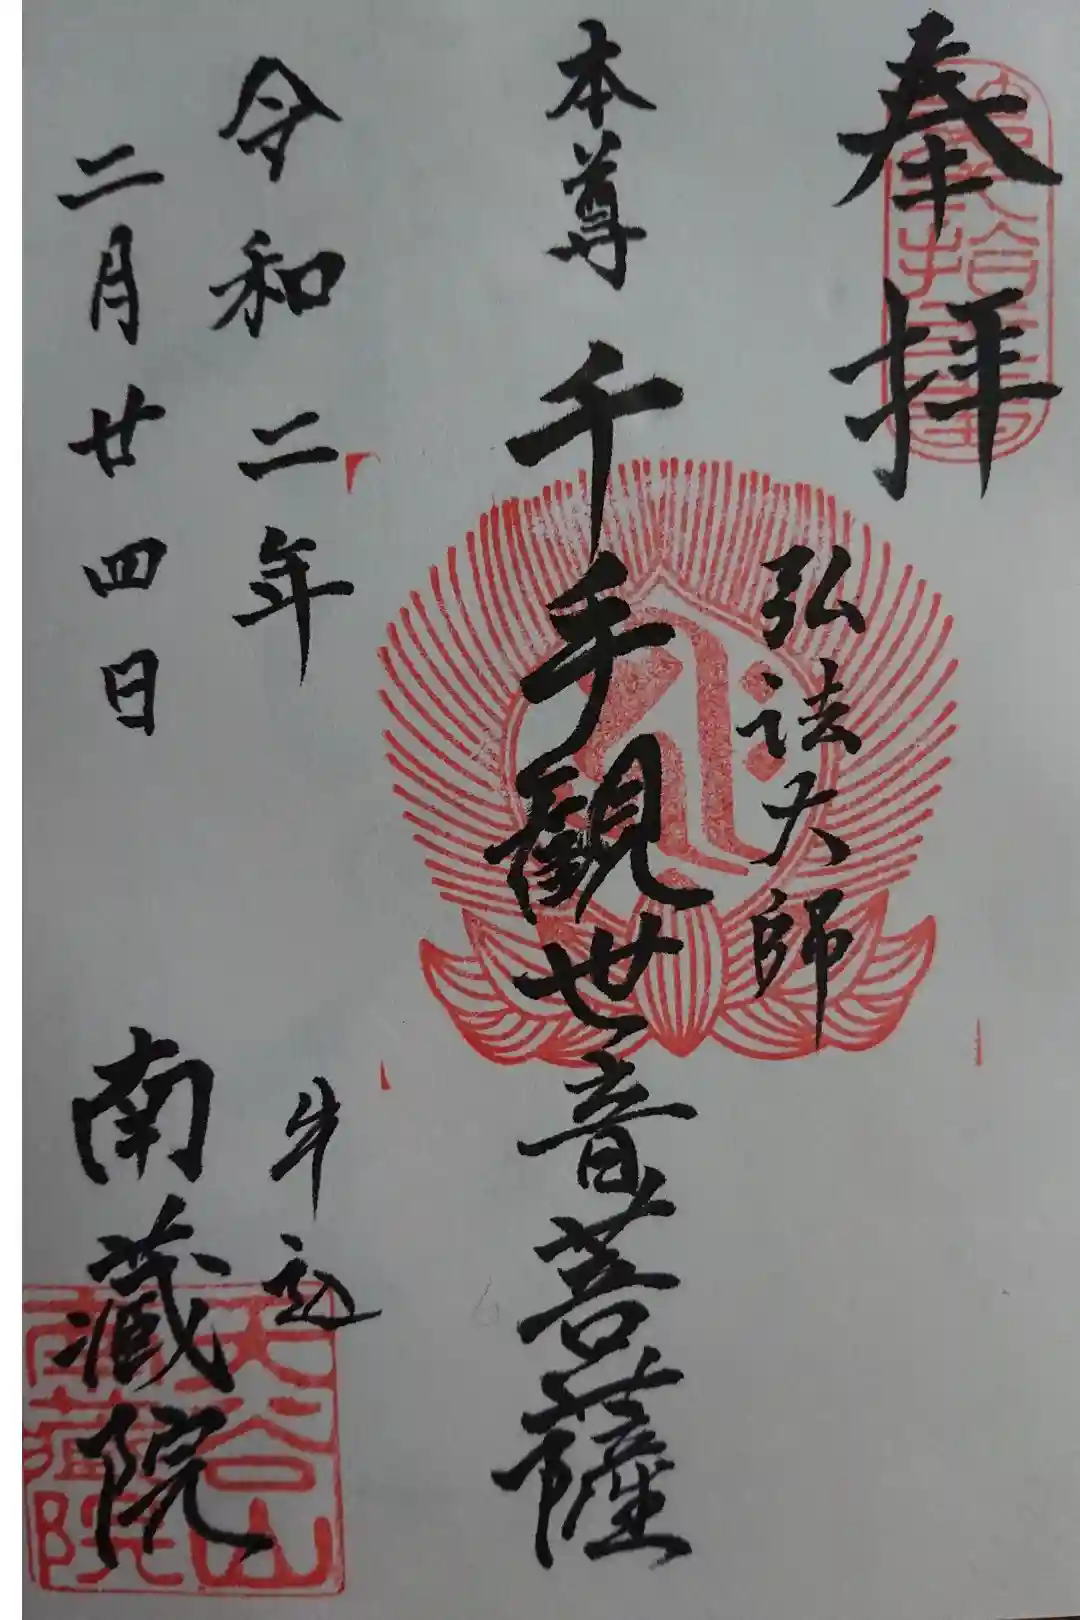 奉拝
弘法大師
本尊 千手観世音菩薩
令和二年
二月廿四日
牛込
南蔵院
天谷山
南蔵院